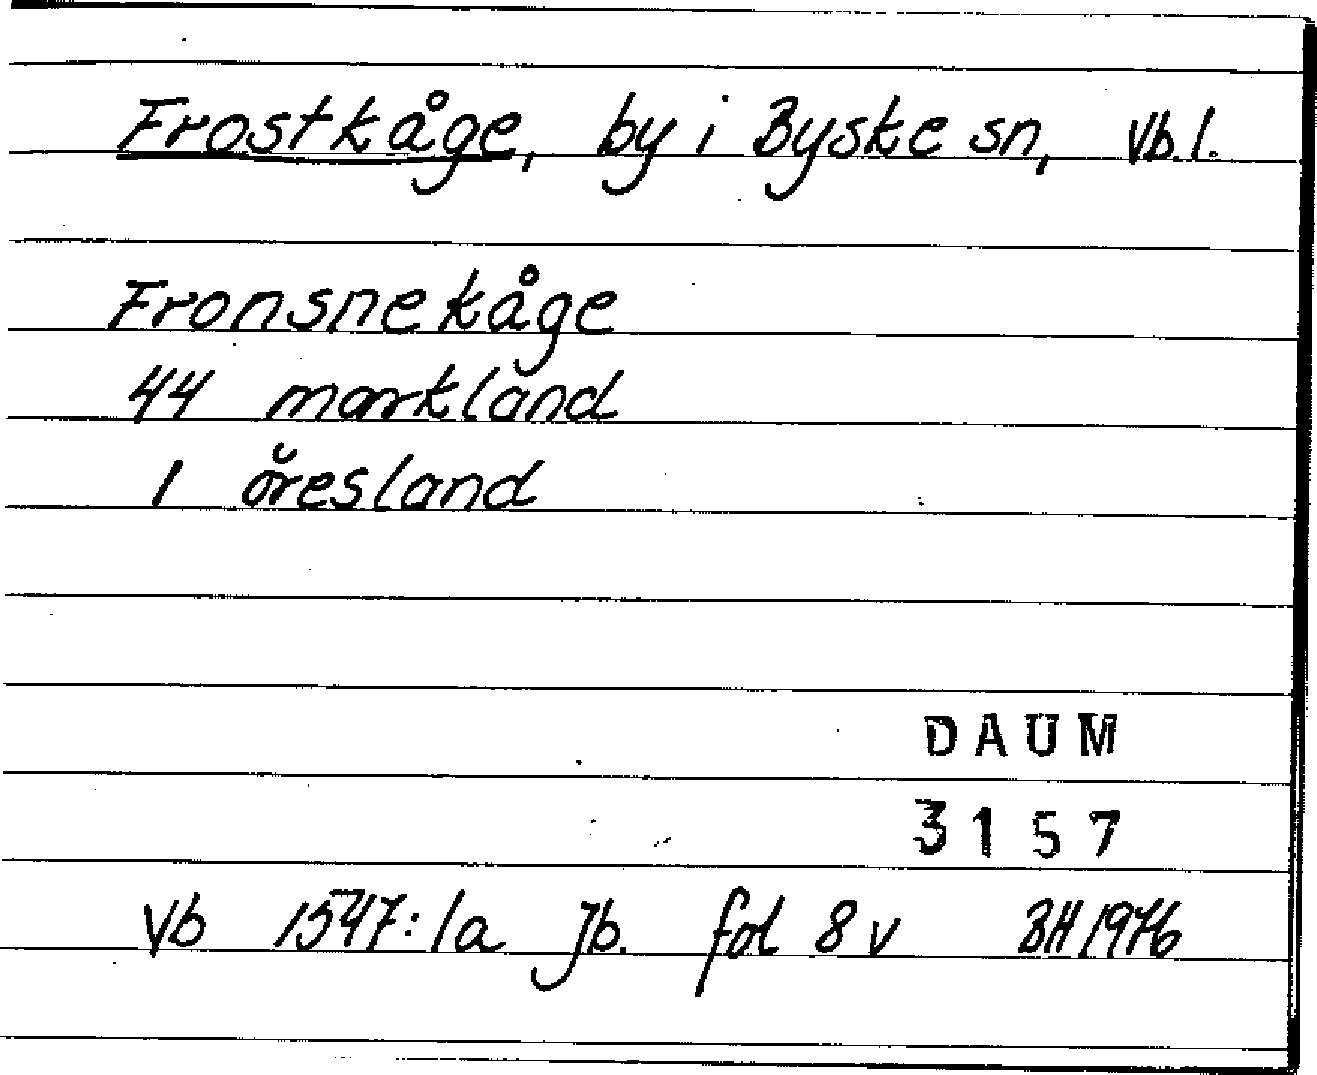 Frostkåge, by i Byske sn, Vb. l.
Fronsnekåge
44 markland
1 öresland
DAUM
3157
Vb 1547:1a Jb. fol 8 v BH 1976